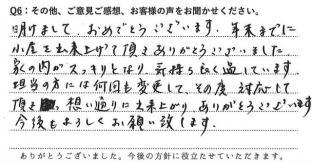 Q6：その他、ご意見ご感想、お客様の声をお聞かせください。
明けまして、おめでとうございます。年末までに
小屋を出来上げて頂きありがとうございました
家の内がスッキリとなり、気持ち良く過しています。
担当の方には何回も変更して、その度対応して
頂き、想い通りに出来上がり、ありがとうございます
今後もよろしくお願い致します。
ありがとうございました。今後の方針に役立たせていただきます。